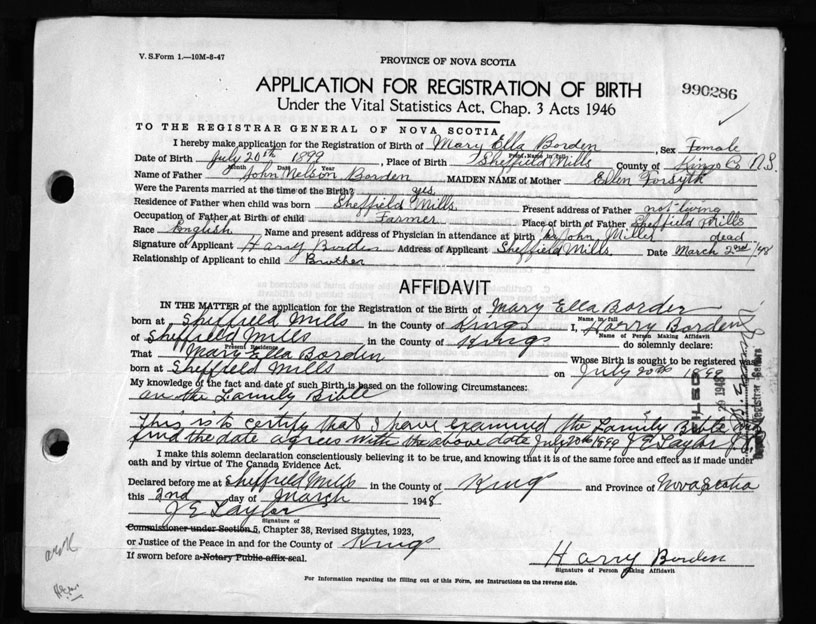 V. S. Form 1.—10M-8-47
PROVINCE OF NOVA SCOTIA
APPLICATION FOR REGISTRATION OF BIRTH
990286
Under the Vital Statistics Act, Chap. 3 Acts 1946
TO THE REGISTRAR GENERAL OF NOVA SCOTIA
I hereby make application for the Registration of Birth of Mary Ella Borden, Sex Female
Print Name in full
Date of Birth July 20th 1899, Place of Birth Sheffield Mills County of Kings Co N.S.
Month Date Year
Name of Father John Nelson Borden MAIDEN NAME of Mother Ellen Forsyth
Were the Parents married at the time of Birth? yes
Residence of Father when child was born Sheffield Mills Present address of Father not living
Occupation of Father at Birth of child Farmer Place of birth of Father Sheffield Mills
Race English Name and present address of Physician in attendance at birth Dr John Miller dead
Signature of Applicant Harry Borden Address of Applicant Sheffield Mills Date March 2nd /48
Relationship of Applicant to child Brother
AFFIDAVIT
IN THE MATTER of the application for the Registration of the Birth of Mary Ella Borden
Name in full
born at Sheffield Mills in the County of Kings I, Harry Borden
Name of Person Making Affidavit
of Sheffield Mills in the County of Kings do solemnly declare:
Present Residence
That Mary Ella Borden Whose Birth is sought to be registered was
born at Sheffield Mills on July 20th 1899
My knowledge of the fact and date of such Birth is based on the following Circumstances:
on the Family Bible
This is to certify that I have examined the Family Bible and
find the date agrees with the above date July 20th 1899 J E Taylor J.P.
I make this solemn declaration conscientiously believing it to be true, and knowing that it is of the same force and effect as if made under
oath and by virtue of The Canada Evidence Act.
Declared before me at Sheffield Mills in the County of King and Province of Nova Scotia
this 2nd day of March 1948
J E Taylor
Signature of
Commissioner under Section 5, Chapter 38, Revised Statutes, 1923,
or Justice of the Peace in and for the County of Kings
If sworn before a Notary Public affix seal.
Harry Borden
Signature of Person Making Affidavit
For Information regarding the filling out of this Form, see Instructions on the reverse side.